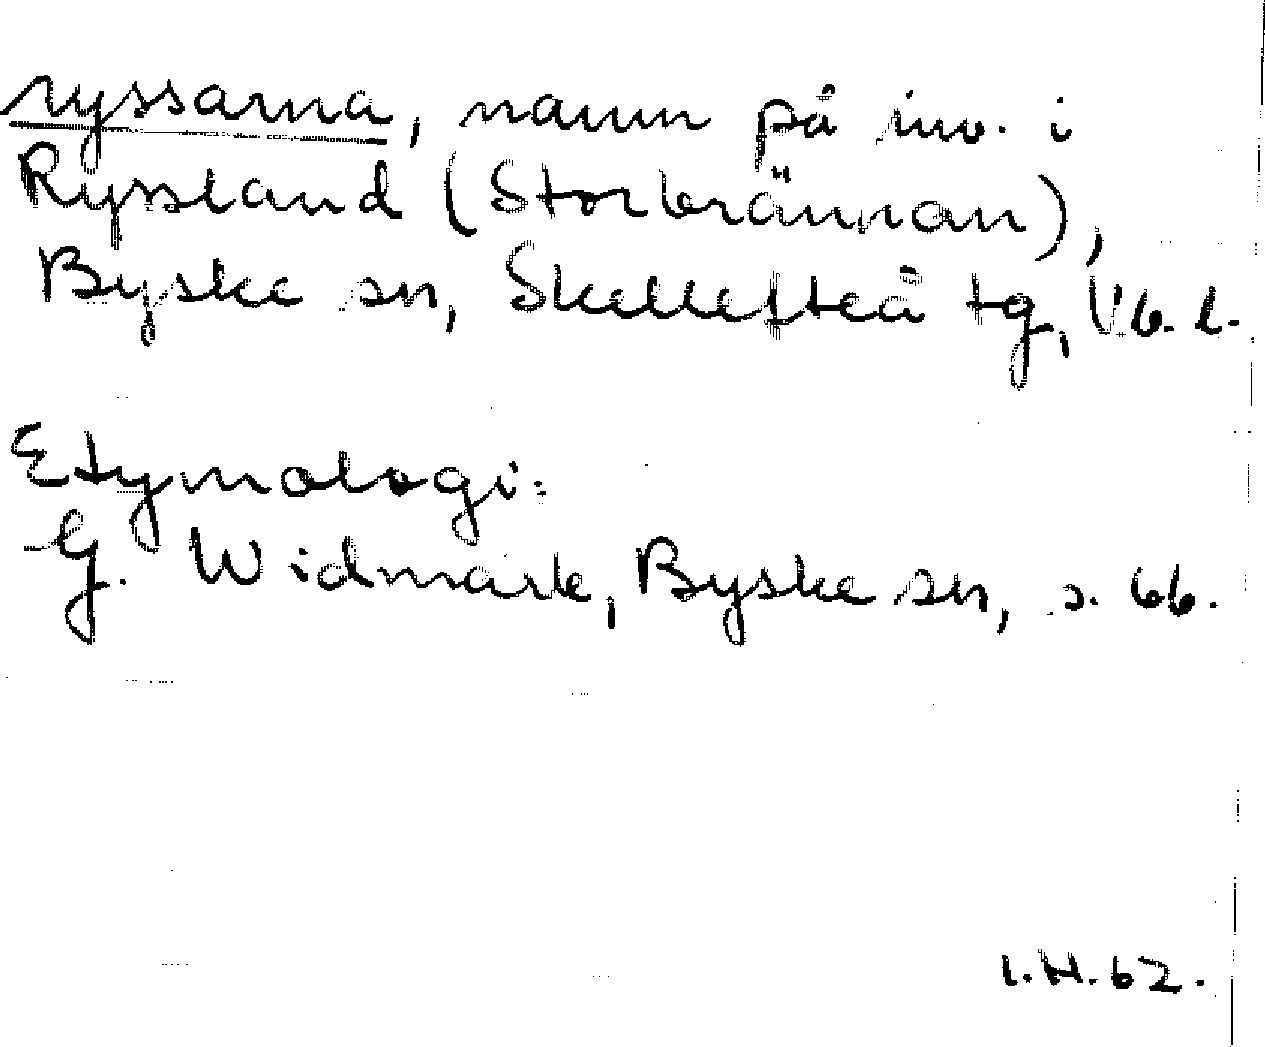 ryssarna, namn på inv. i
Ryssland (Storbrännan),
Byske sn, Skellefteå tg, Vb. l.
Etymologi:
G. Widmark, Byske sn, s. 66.
I.H.62.